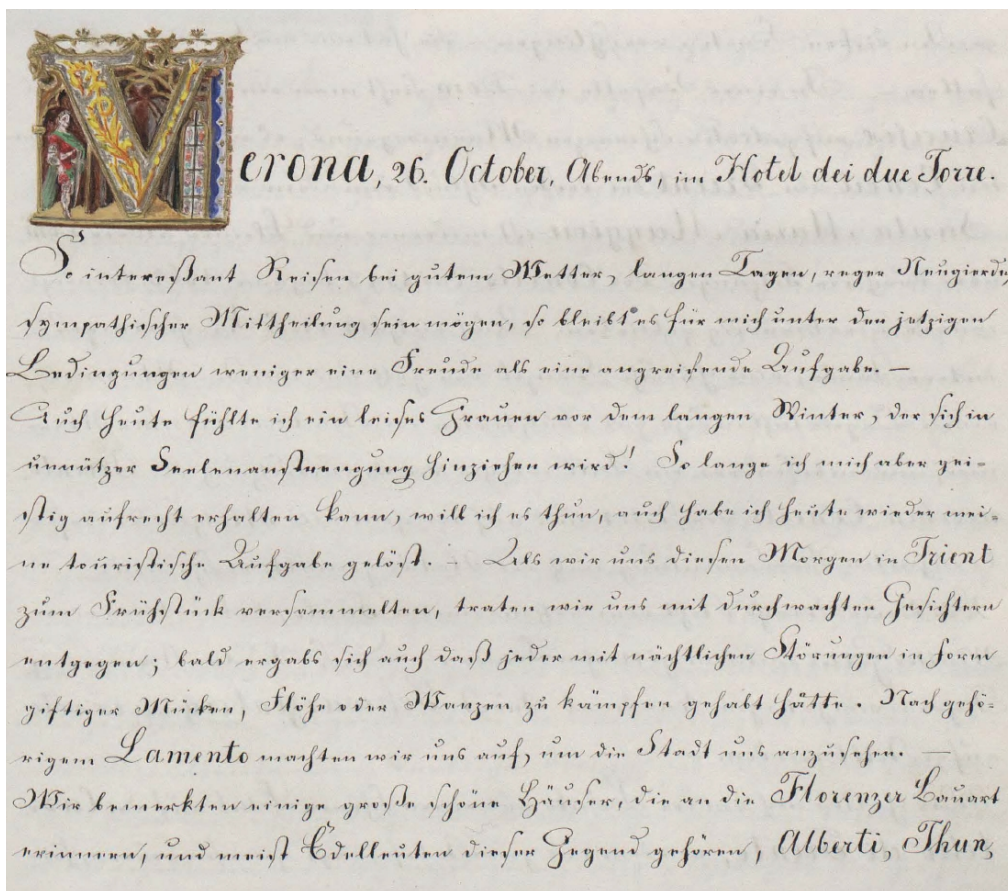 Verona, 26. October, Abends, im Hotel dei due Torre.
So intereßant Reisen bei gutem Wetter, langen Tagen, reger Neugierde,
sympathischer Mittheilung sein mögen, so bleibt es für mich unter den jetzigen
Bedingungen weniger eine Freude als eine angreifende Aufgabe. —
Auch heute fühlte ich ein leises Grauen vor dem langen Winter, der sich in
unnützer Seelenanstrengung hinziehen wird! So lange ich mich aber gei-
stig aufrecht erhalten kann, will ich es thun, auch habe ich heute wieder mei-
ne touristische Aufgabe gelöst. — Als wir uns diesen Morgen in Trient
zum Frühstück versammelten, traten wir uns mit durchwachten Gesichtern
entgegen; bald ergabs sich auch daß jeder mit nächtlichen Störungen in Form
giftiger Mücken, Flöhe oder Wanzen zu kämpfen gehabt hätte. Nach gehö-
rigem Lamento machten wir uns auf, um die Stadt uns anzusehen. —
Wir bemerkten einige große schöne Häuser, die an die Florenzer Bauart
erinnern, und meist Edelleuten dieser Gegend gehören, Alberti, Thun,